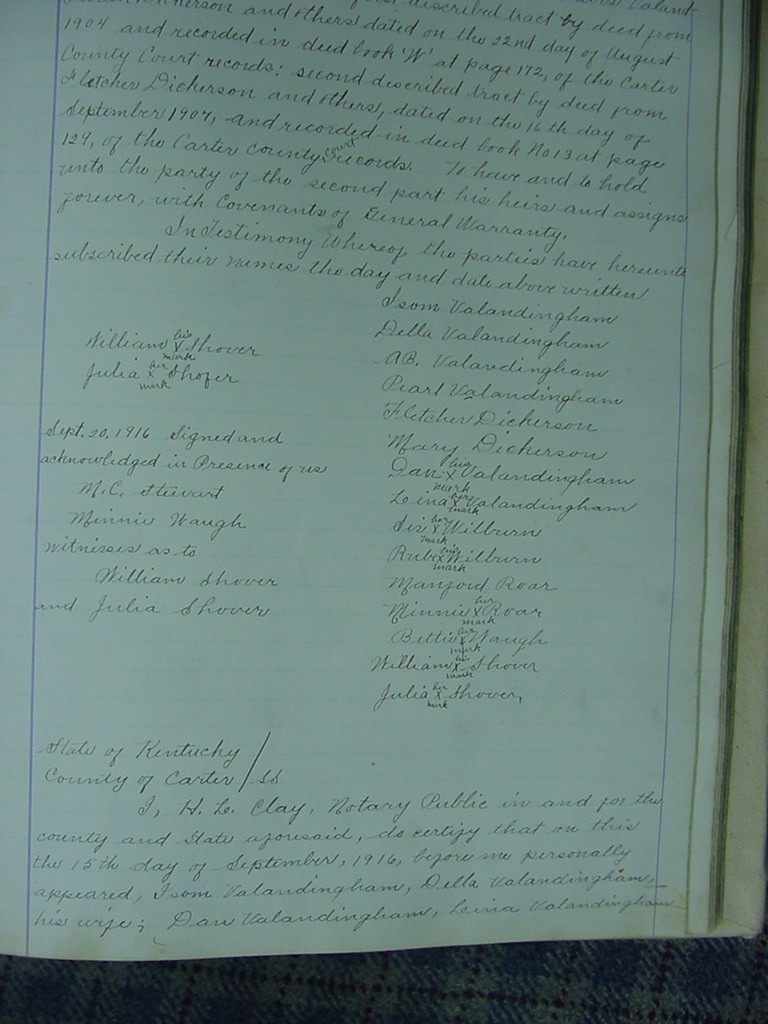 described tract by deed from
1904 and others dated on the 22nd day of August
and recorded in deed book "W" at page 172, of the Carter
County Court records: second described tract by deed from
Fletcher Dickerson and others, dated on the 16th day of
September 1907, and recorded in deed book No 13 at page
129, of the Carter County court records. To have and to hold
unto the party of the second part his heirs and assigns
forever, with Covenants of General Warranty.
In Testimony Whereof the parties have hereunto
subscribed their names the day and date above written.
Isom Valandingham
Della Valandingham
William his X mark Shover
AB. Valandingham
Julia her X mark Shofer
Pearl Valandingham
Fletcher Dickerson
Sept. 20, 1916 Signed and
Mary Dickerson
acknowledged in Presence of us
Dan his X mark Valandingham
M.C. Stewart
Leina her X mark Valandingham
Minnie Waugh
Sis her X mark Wilburn
witnesses as to
Rube his X mark Wilburn
William Shover
Manford Roar
and Julia Shover
Minnie her X mark Roar
Bettie her X mark Waugh
William his X mark Shover
Julia her X mark Shover,
State of Kentucky /
County of Carter / SS
I, H. L. Clay, Notary Public in and for the
county and State aforesaid, do certify that on this
the 15th day of September, 1916, before me personally
appeared, Isom Valandingham, Della Valandingham,
his wife; Dan Valandingham, Leina Valandingham